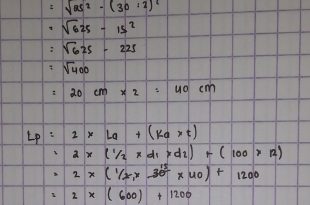 = √25² - (30 : 2)²
= √625 - 15²
= √625 - 225
= √400
= 20 cm × 2 = 40 cm
Lp = 2 × La + (Ka × t)
= 2 × (1/2 × d1 × d2) + (100 × 12)
= 2 × (1/2 × 30 15 × 40) + 1200
= 2 × (600) + 1200